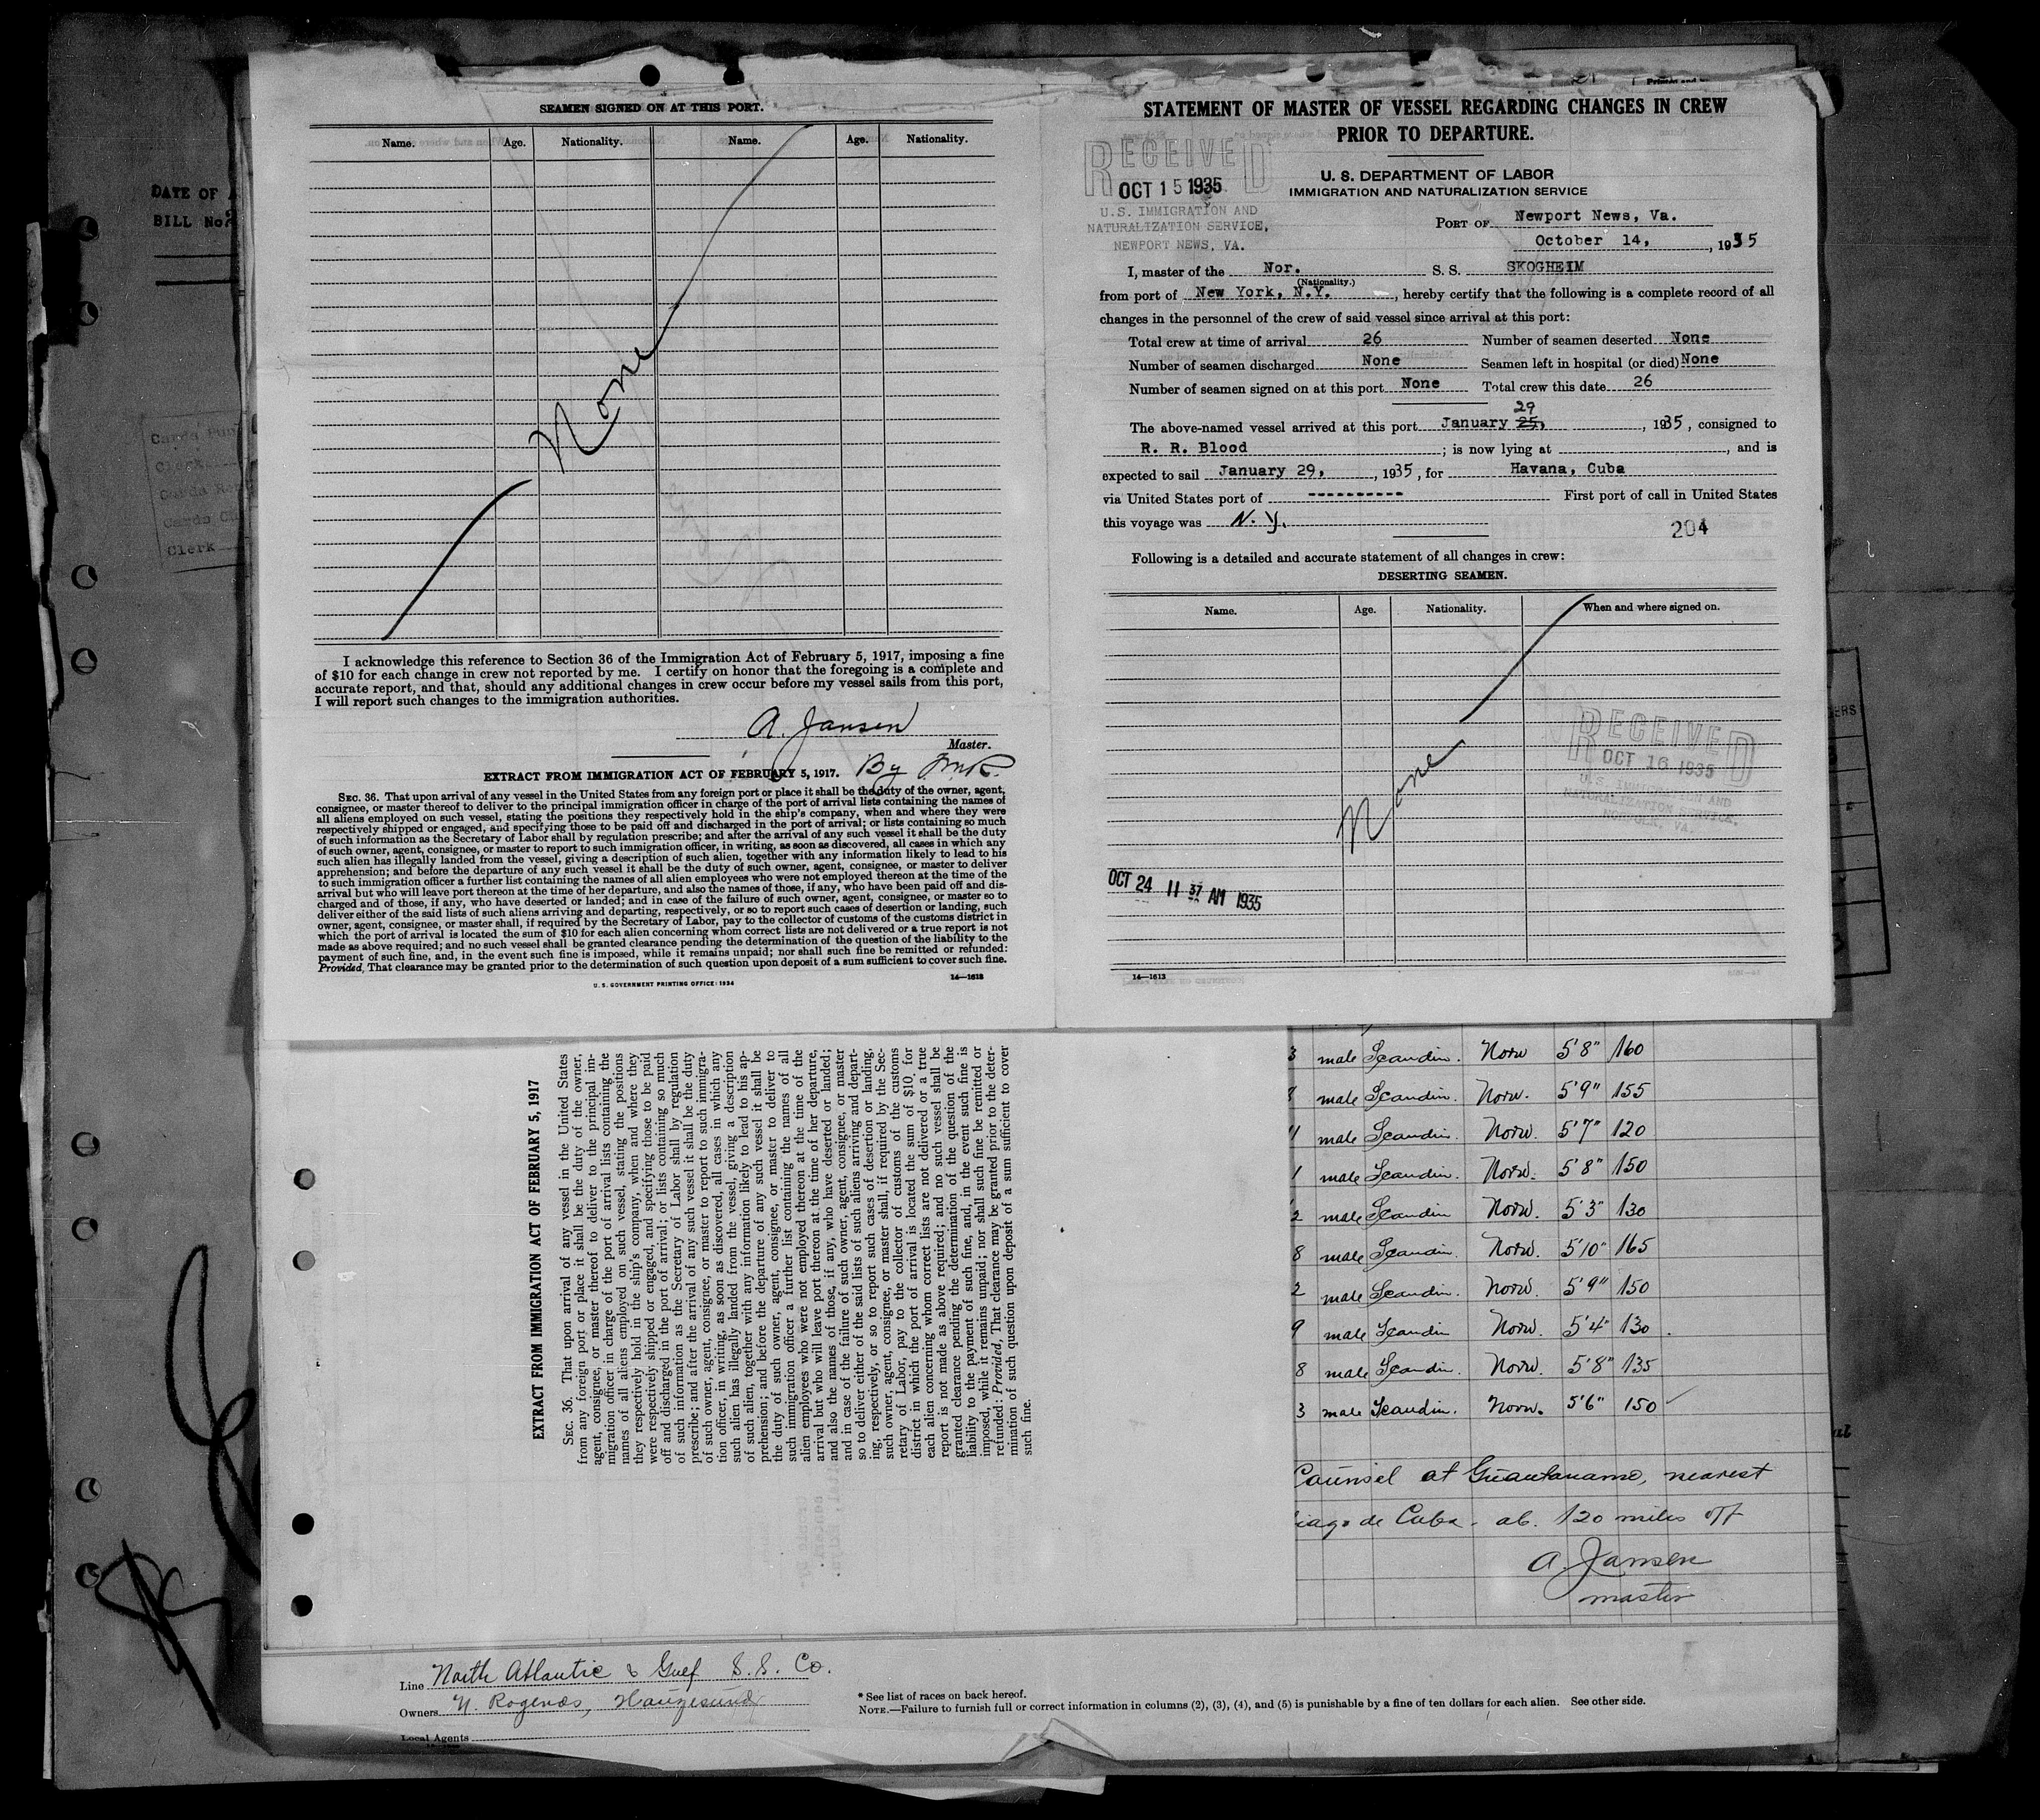 DATE OF A
BILL No.
Clerk
SEAMEN SIGNED ON AT THIS PORT.
Name. Age. Nationality. Name. Age. Nationality.
None
I acknowledge this reference to Section 36 of the Immigration Act of February 5, 1917, imposing a fine
of $10 for each change in crew not reported by me. I certify on honor that the foregoing is a complete and
accurate report, and that, should any additional changes in crew occur before my vessel sails from this port,
I will report such changes to the immigration authorities.
A. Jansen
Master.
By
EXTRACT FROM IMMIGRATION ACT OF FEBRUARY 5, 1917.
SEC. 36. That upon arrival of any vessel in the United States from any foreign port or place it shall be the duty of the owner, agent,
consignee, or master thereof to deliver to the principal immigration officer in charge of the port of arrival lists containing the names of
all aliens employed on such vessel, stating the positions they respectively hold in the ship's company, when and where they were
respectively shipped or engaged, and specifying those to be paid off and discharged in the port of arrival; or lists containing so much
of such information as the Secretary of Labor shall by regulation prescribe; and after the arrival of any such vessel it shall be the duty
of such owner, agent, consignee, or master to report to such immigration officer, in writing, as soon as discovered, all cases in which any
such alien has illegally landed from the vessel, giving a description of such alien, together with any information likely to lead to his
apprehension; and before the departure of any such vessel it shall be the duty of such owner, agent, consignee, or master to deliver
to such immigration officer a further list containing the names of all alien employees who were not employed thereon at the time of the
arrival but who will leave port thereon at the time of her departure, and also the names of those, if any, who have been paid off and dis-
charged and of those, if any, who have deserted or landed; and in case of the failure of such owner, agent, consignee, or master so to
deliver either of the said lists of such aliens arriving and departing, respectively, or so to report such cases of desertion or landing, such
owner, agent, consignee, or master shall, if required by the Secretary of Labor, pay to the collector of customs of the customs district in
which the port of arrival is located the sum of $10 for each alien concerning whom correct lists are not delivered or a true report is not
made as above required; and no such vessel shall be granted clearance pending the determination of the question of the liability to the
payment of such fine, and, in the event such fine is imposed, while it remains unpaid; nor shall such fine be remitted or refunded:
Provided, That clearance may be granted prior to the determination of such question upon deposit of a sum sufficient to cover such fine.
14—1613
U. S. GOVERNMENT PRINTING OFFICE: 1934
STATEMENT OF MASTER OF VESSEL REGARDING CHANGES IN CREW
PRIOR TO DEPARTURE.
RECEIVED
OCT 15 1935
U.S. IMMIGRATION AND
NATURALIZATION SERVICE,
NEWPORT NEWS, VA.
U. S. DEPARTMENT OF LABOR
IMMIGRATION AND NATURALIZATION SERVICE
PORT OF Newport News, Va.
October 14, , 1935
I, master of the Nor. S. S. SKOGHEIM
(Nationality.)
from port of New York, N.Y. , hereby certify that the following is a complete record of all
changes in the personnel of the crew of said vessel since arrival at this port:
Total crew at time of arrival 26 Number of seamen deserted None
Number of seamen discharged None Seamen left in hospital (or died) None
Number of seamen signed on at this port None Total crew this date 26
29
The above-named vessel arrived at this port January 25, , 1935, consigned to
R. R. Blood ; is now lying at , and is
expected to sail January 29, , 1935, for Havana, Cuba
via United States port of ---------- First port of call in United States
this voyage was N. Y.
204
Following is a detailed and accurate statement of all changes in crew:
DESERTING SEAMEN.
Name. Age. Nationality. When and where signed on.
None
RECEIVED
OCT 16 1935
U.S. IMMIGRATION AND
NATURALIZATION SERVICE,
NORFOLK, VA.
OCT 24 11 37 AM 1935
14—1613
EXTRACT FROM IMMIGRATION ACT OF FEBRUARY 5, 1917
SEC. 36. That upon arrival of any vessel in the United States
from any foreign port or place it shall be the duty of the owner,
agent, consignee, or master thereof to deliver to the principal im-
migration officer in charge of the port of arrival lists containing the
names of all aliens employed on such vessel, stating the positions
they respectively hold in the ship's company, when and where they
were respectively shipped or engaged, and specifying those to be paid
off and discharged in the port of arrival; or lists containing so much
of such information as the Secretary of Labor shall by regulation
prescribe; and after the arrival of any such vessel it shall be the duty
of such owner, agent, consignee, or master to report to such immigra-
tion officer, in writing, as soon as discovered, all cases in which any
such alien has illegally landed from the vessel, giving a description
of such alien, together with any information likely to lead to his ap-
prehension; and before the departure of any such vessel it shall be
the duty of such owner, agent, consignee, or master to deliver to
such immigration officer a further list containing the names of all
alien employees who were not employed thereon at the time of the
arrival but who will leave port thereon at the time of her departure,
and also the names of those, if any, who have deserted or landed;
and in case of the failure of such owner, agent, consignee, or master
so to deliver either of the said lists of such aliens arriving and depart-
ing, respectively, or so to report such cases of desertion or landing,
such owner, agent, consignee, or master shall, if required by the Sec-
retary of Labor, pay to the collector of customs of the customs
district in which the port of arrival is located the sum of $10 for
each alien concerning whom correct lists are not delivered or a true
report is not made as above required; and no such vessel shall be
granted clearance pending the determination of the question of the
liability to the payment of such fine, and, in the event such fine is
imposed, while it remains unpaid; nor shall such fine be remitted or
refunded: Provided, That clearance may be granted prior to the deter-
mination of such question upon deposit of a sum sufficient to cover
such fine.
3 male Scandin. Norw 5'8" 160
8 male Scandin. Norw. 5'9" 155
4 male Scandin. Norw. 5'7" 120
1 male Scandin. Norw. 5'8" 150
2 male Scandin Norw. 5'3" 130
8 male Scandin. Norw. 5'10" 165
2 male Scandin. Norw. 5'9" 150
9 male Scandin Norw. 5'4" 130.
8 male Scandin. Norw. 5'8" 135
3 male Scandin. Norw. 5'6" 150
Counsel at Guantanamo, nearest
iago de Cuba - ab. 120 miles off
A. Jansen
master
Line North Atlantic & Gulf S.S. Co.
Owners N. Rogenæs, Haugesund
Local Agents
* See list of races on back hereof.
NOTE.—Failure to furnish full or correct information in columns (2), (3), (4), and (5) is punishable by a fine of ten dollars for each alien. See other side.